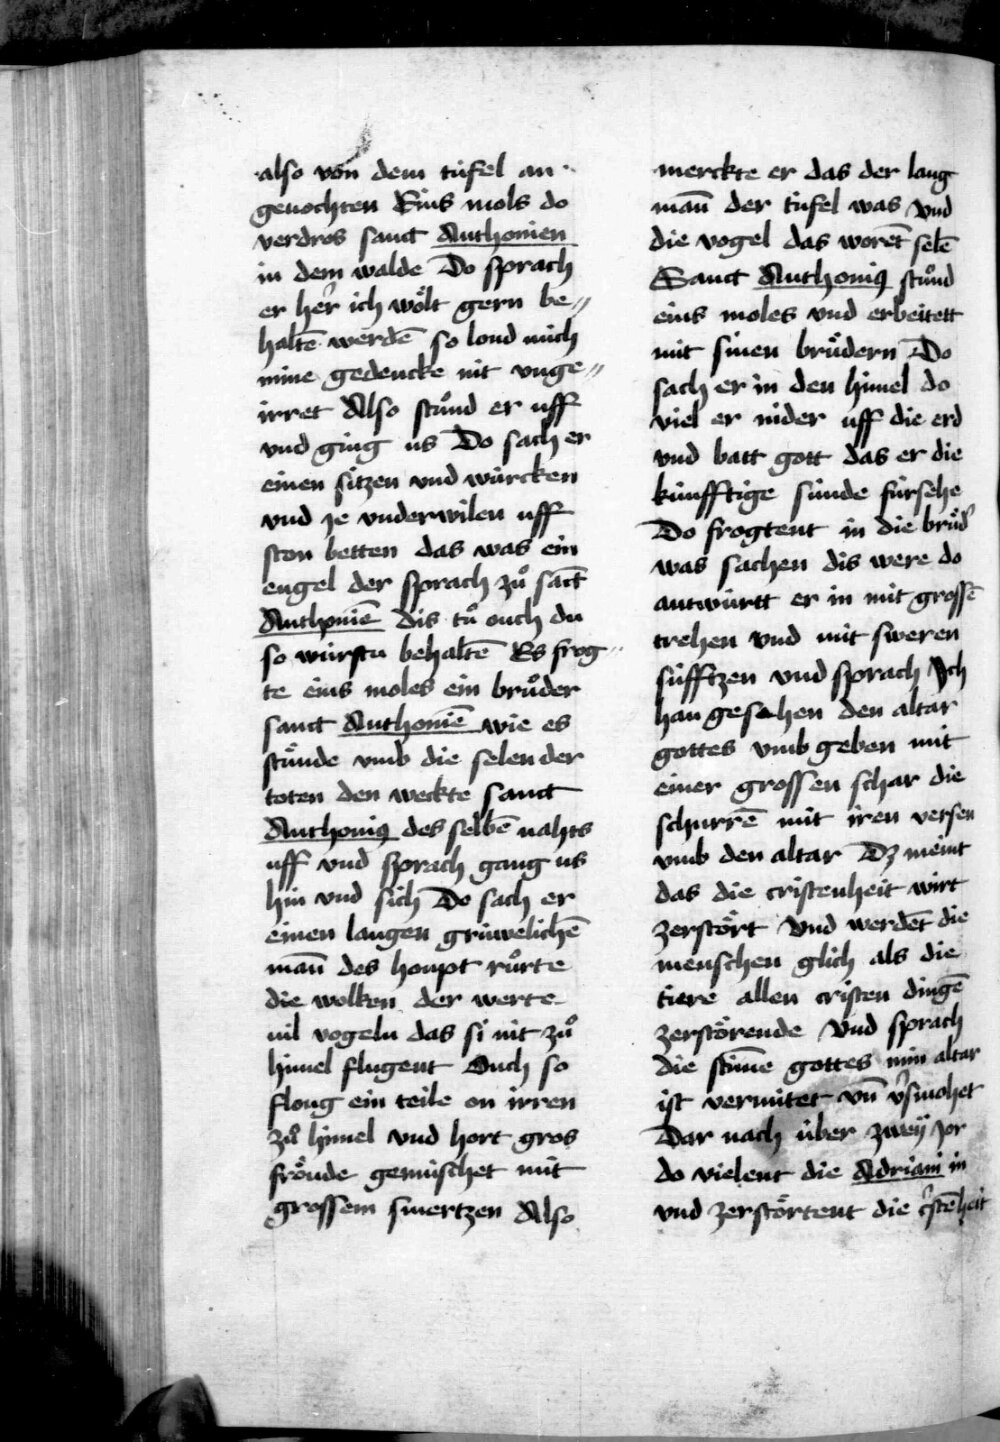 also von dem túfel an
gevochten Eins mols do
verdros sanct Anthonien
in dem walde Do sprach
er her̄ ich wo̎lt gern be〃
haltē werdē so lond mich
mine gedencke nit unge〃
irret Also stůnd er uff
vnd ging us Do sach er
einen sitzen vnd wúrcken
vnd je vnderwilen uff
ston betten das was ein
engel der sprach zů sāct
Anthoniē dis tů ouch du
so wúrstu behaltē Es frog〃
te eins moles ein brůder
sanct Anthoniē wie es
stu̎nde vmb die selen der
toten den weckte sanct
Anthoniꝯ des selbē nahts
uff vnd sprach gang us
hin vnd sich Do sach er
einen langen grúwelichē
man̄ des houpt růrte
die wolken der werte
vil vogeln das si nit zů
himel flugent Ouch so
floug ein teile on irren
zů himel vnd hort gros
fro̎nde gemúschet mit
grossem smertzen Also
merckte er das der lang
man̄ der túfel was vnd
die vogel das worēt selē
Sanct Anthoniꝯ stůnd
eins moles vnd erbeitett
mit sinen bru̎dern Do
sach er in den himel do
viel er nider uff die erd
vnd batt gott das er die
kúnfftige súnde fúrsehe
Do frogtent in die bru̎d̄
was sachen dis were do
antwúrtt er in mit grossē
trehen vnd mit sweren
súfftzen vnd sprach Ich
han gesehen den altar
gottes vmb geben mit
einer grossen schar die
schurrē mit iren versen
vmb den altar Dz meint
das die cristenheit wirt
zersto̎rt Vnd werdēt die
menschen glich als die
tiere allen cristen dingē
zersto̎rende Vnd sprach
die stim̄e gottes min altar
ist vermitet vn̄ v̄smohet
Dar nach úber zweÿ jor
do vielent die Adriani in
vnd zersto̎rtent die c̄stēheit